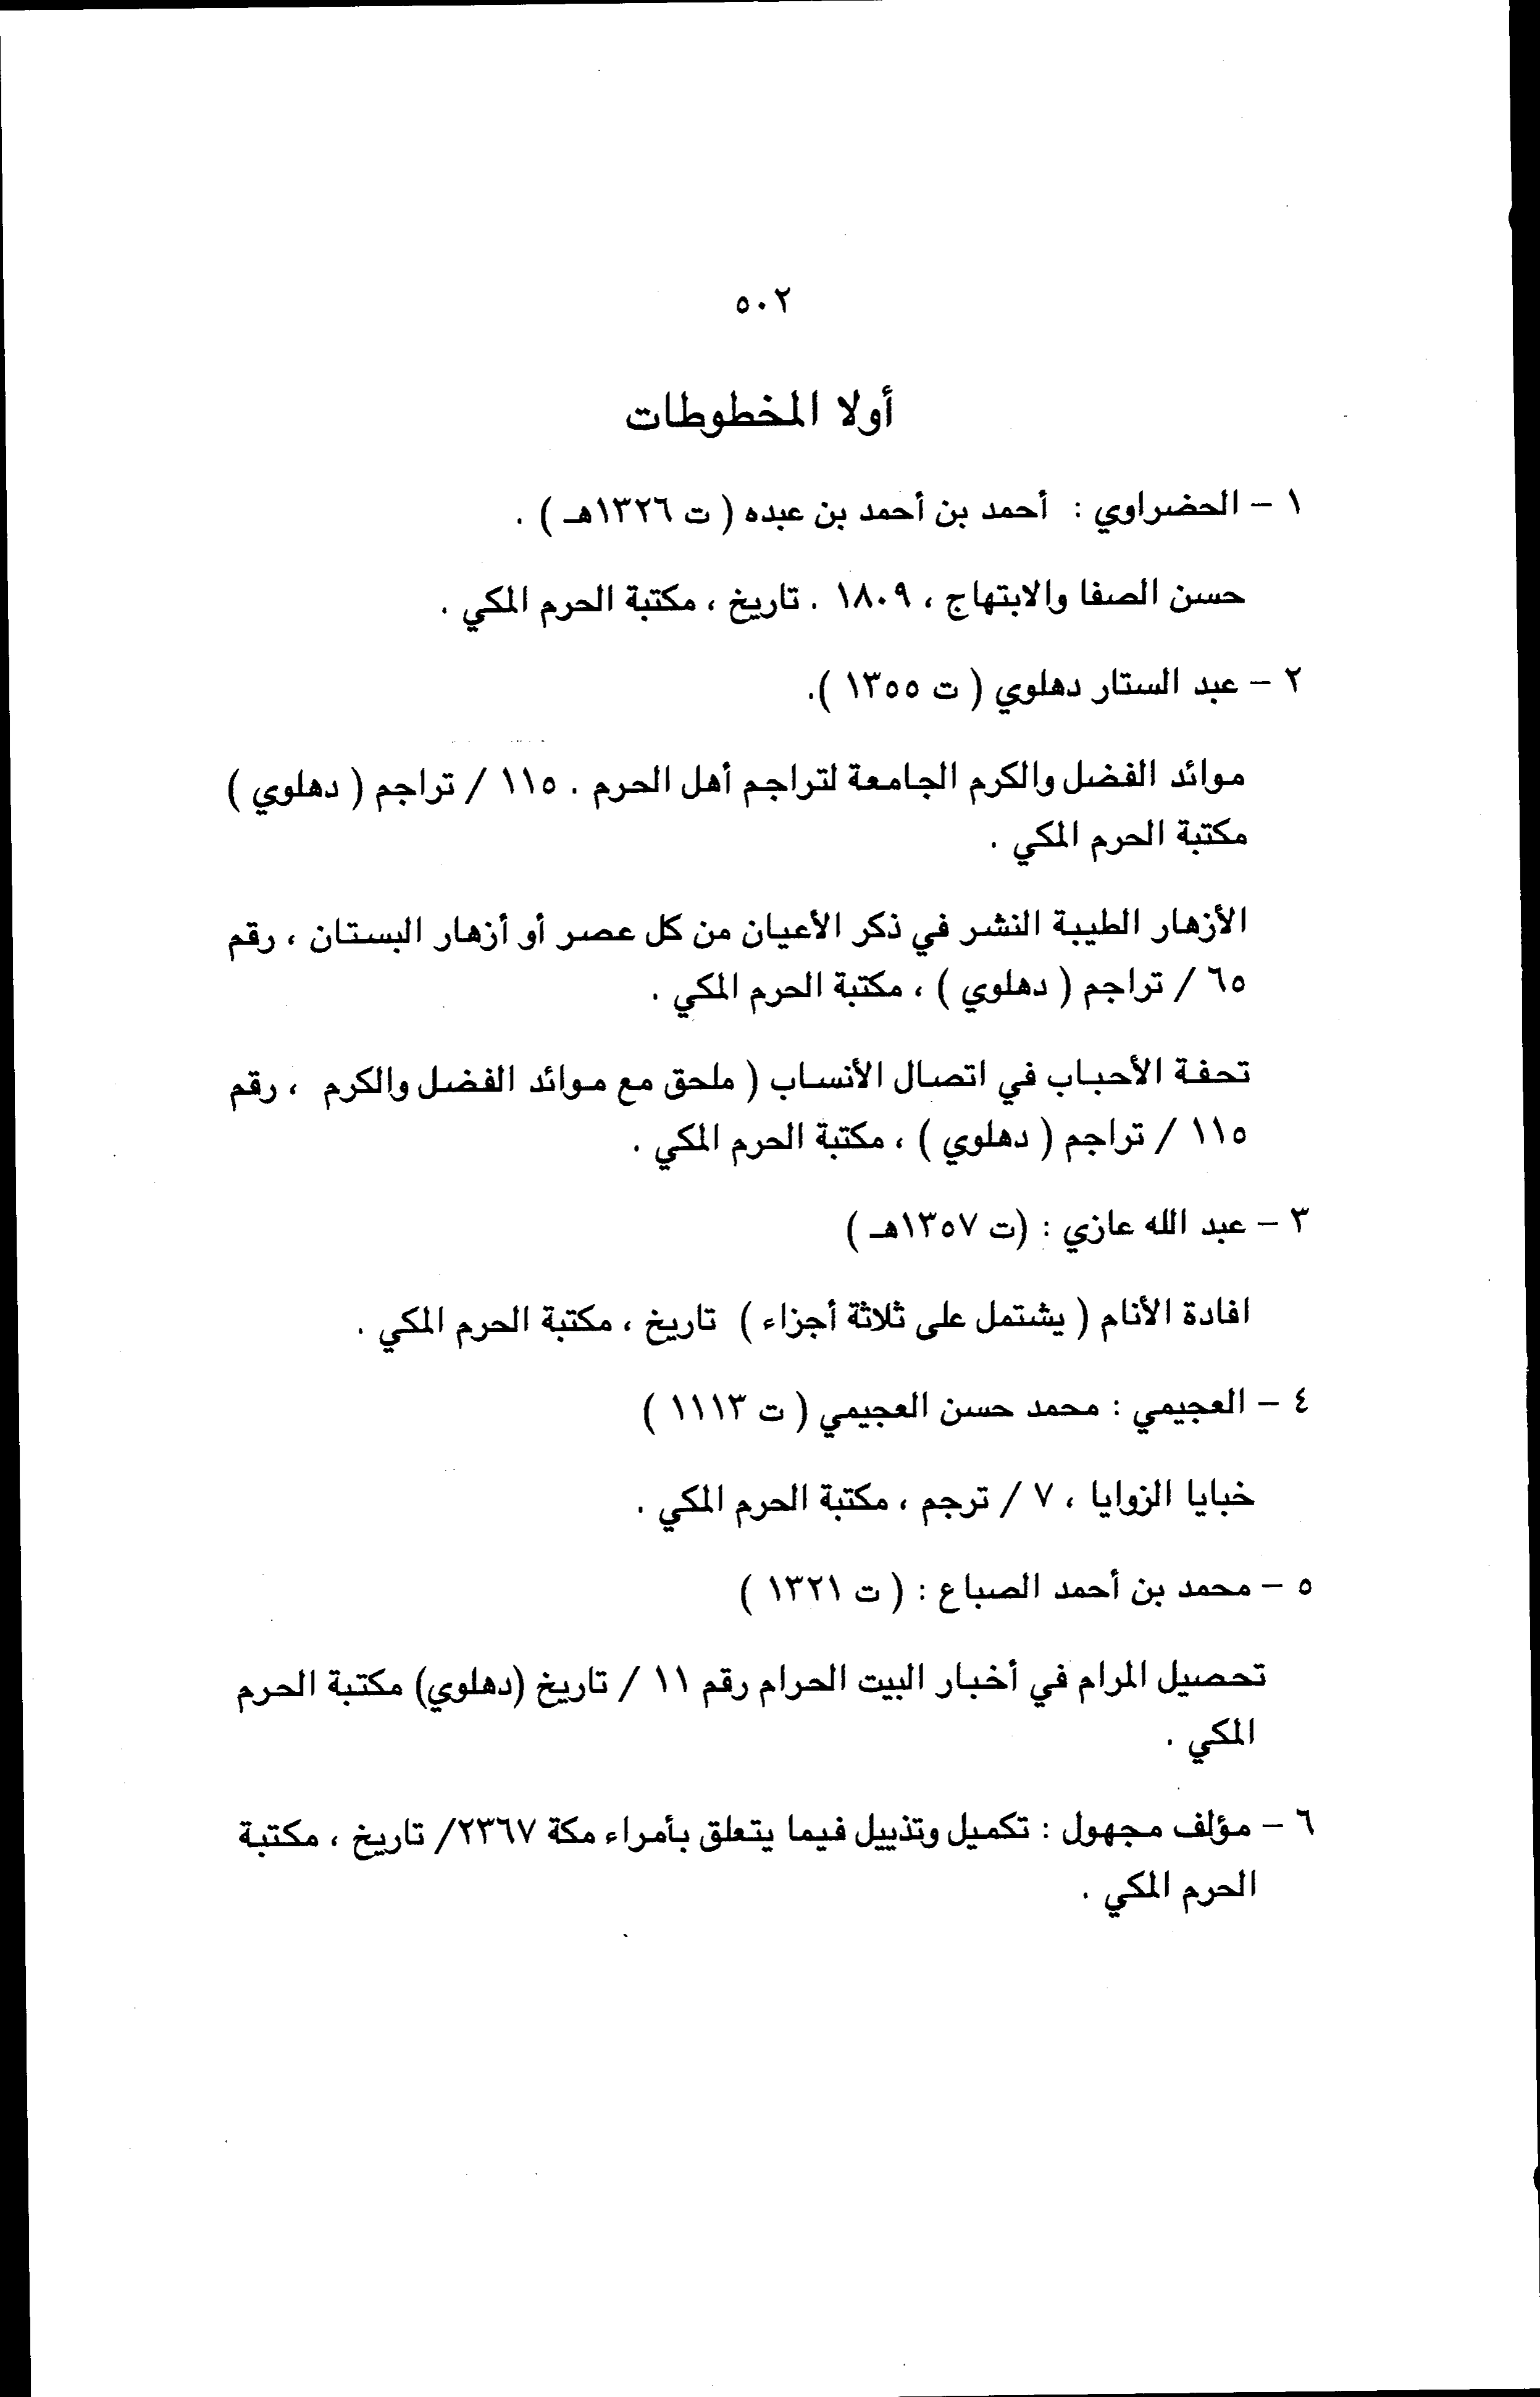 ٥٠٢
أولا المخطوطات
١ - الحضراوي : أحمد بن أحمد بن عبده ( ت ١٣٢٦هـ ) .
حسن الصفا والابتهاج ، ١٨٠٩ . تاريخ ، مكتبة الحرم المكي .
٢ - عبد الستار دهلوي ( ت ١٣٥٥ ).
موائد الفضل والكرم الجامعة لتراجم أهل الحرم . ١١٥ / تراجم ( دهلوي )
مكتبة الحرم المكي .
الأزهار الطيبة النشر في ذكر الأعيان من كل عصر أو أزهار البستان ، رقم
٦٥ / تراجم ( دهلوي ) ، مكتبة الحرم المكي .
تحفة الأحباب في اتصال الأنساب ( ملحق مع موائد الفضل والكرم ، رقم
١١٥ / تراجم ( دهلوي ) ، مكتبة الحرم المكي .
٣ - عبد الله عازي : (ت ١٣٥٧هـ )
افادة الأنام ( يشتمل على ثلاثة أجزاء ) تاريخ ، مكتبة الحرم المكي .
٤ - العجيمي : محمد حسن العجيمي ( ت ١١١٣ )
خبايا الزوايا ، ٧ / ترجم ، مكتبة الحرم المكي .
٥ - محمد بن أحمد الصباع : ( ت ١٣٢١ )
تحصيل المرام في أخبار البيت الحرام رقم ١١ / تاريخ (دهلوي) مكتبة الحرم
المكي .
٦ - مؤلف مجهول : تكميل وتذييل فيما يتعلق بأمراء مكة ٢٣٦٧/ تاريخ ، مكتبة
الحرم المكي .